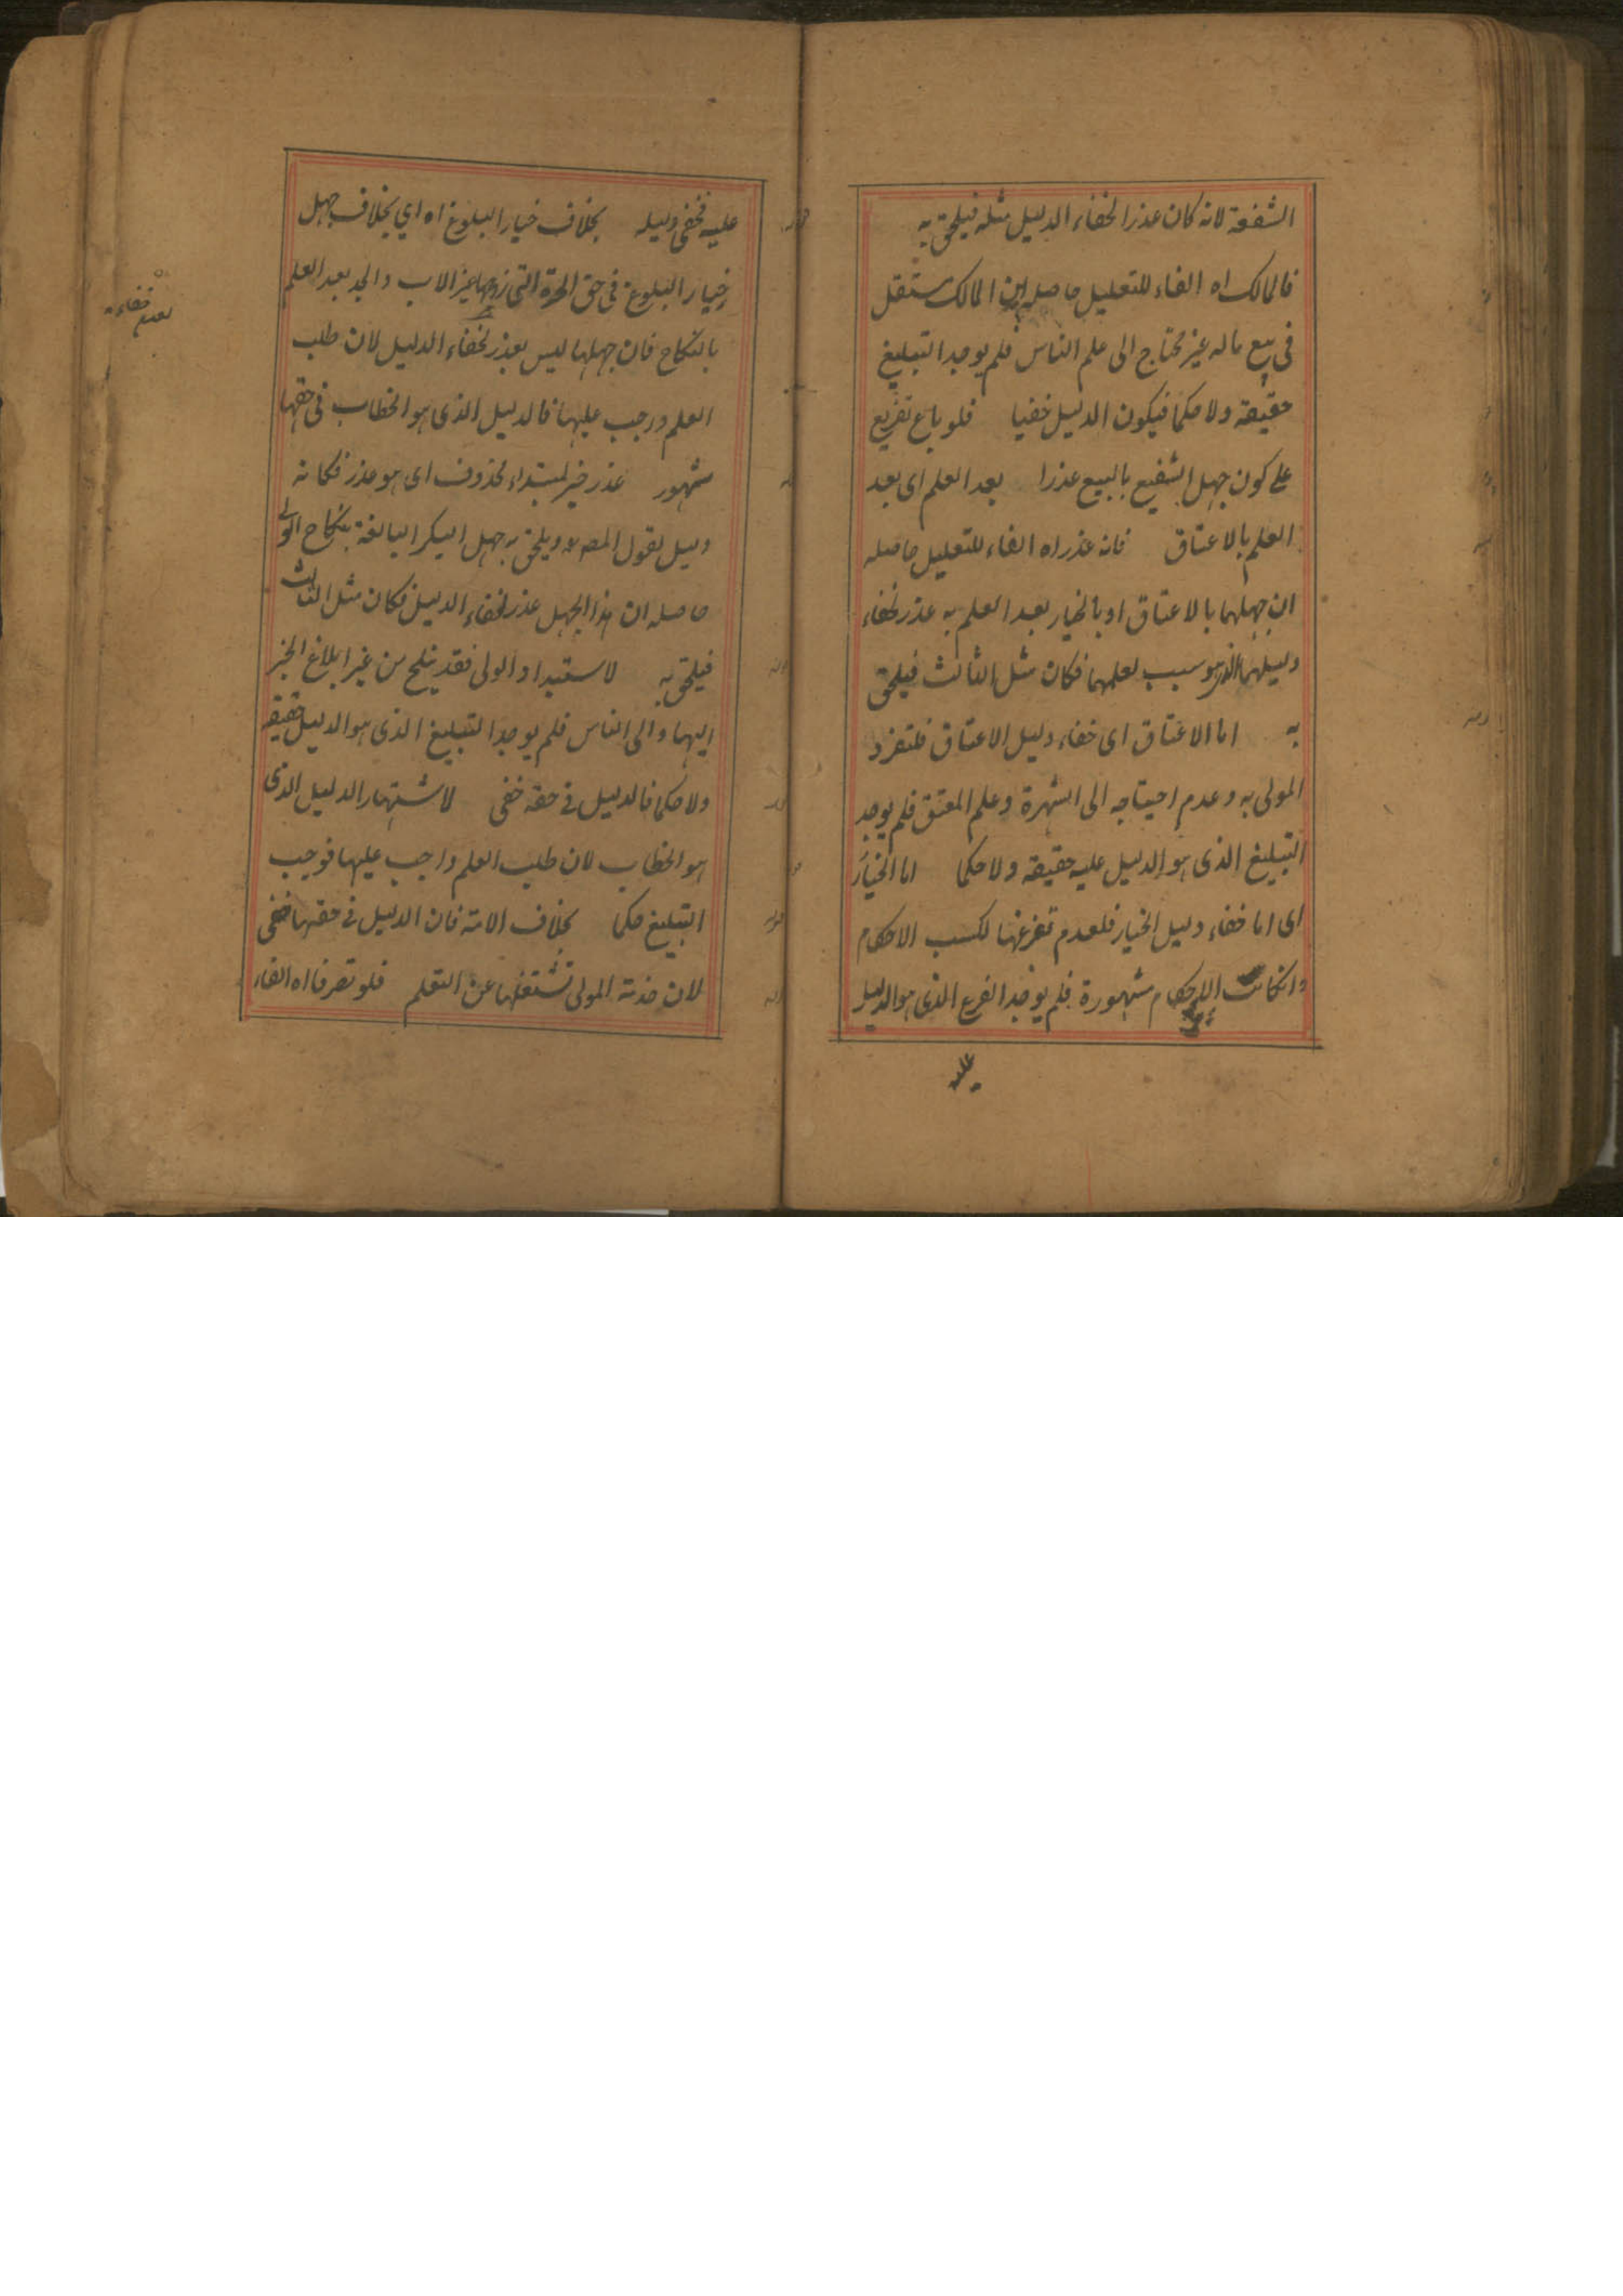 الشفعة لانه كان عذرا لخفاء الدليل مثله فيلحق به
فالمالك اه الفاء للتعليل حاصله ان المالك مستقل
فى بيع ماله غير محتاج الى علم الناس فلم يوجد التبليغ
حقيقة ولا حكما فيكون الدليل خفيا فلو باع تفريع
على كون جهل الشفيع بالبيع عذرا بعد العلم اى بعد
العلم بالاعتاق فانه عذر اه الفاء للتعليل حاصله
ان جهلها بالاعتاق او بالخيار بعد العلم به عذر لخفاء
دليلهما الذى هو سبب لعلمهما فكان مثل الثالث فيلحق
به اما الاعتاق اى خفاء دليل الاعتاق فلتفرد
المولى به وعدم احتياجه الى الشهرة وعلم المعتق فلم يوجد
التبليغ الذى هو الدليل عليه حقيقة ولا حكما اما الخيار
اى اما خفاء دليل الخيار فلعدم تفرغها لكسب الاحكام
وانكانت الاحكام مشهورة فلم يوجد الفرع الذى هو الدليل
عليه
عليه فخفى دليله بخلاف خيار البلوغ اه اي بخلاف جهل
خيار البلوغ فى حق الحرة التى زوجها غير الاب والجد بعد العلم
بالنكاح فان جهلها ليس بعذر لخفاء الدليل لان طلب
العلم ورجب عليها فالدليل الذى هو الخطاب فى حقها
مشهور عذر خبر لمبتداء محذوف اى هو عذر فكانه
دليل لقول المصـ ويلحق به جهل البكر البالغة بنكاح الولى
حاصله ان هذا الجهل عذر لخفاء الدليل فكان مثل الثالث
فيلحق به لاستبداد الولى فقد ينكح من غير ابلاغ الخبر
اليها والى الناس فلم يوجد التبليغ الذى هو الدليل حقيقة
ولا حكما فالدليل فى حقه خفى لاشتهار الدليل الذى
هو الخطاب لان طلب العلم واجب عليها فوجب
التبليغ حكما بخلاف الامة فان الدليل فى حقها خفى
لان خدمة المولى تشتغلها عن التعلم فلو تصرفا اه الفاء
لعدم خفاء